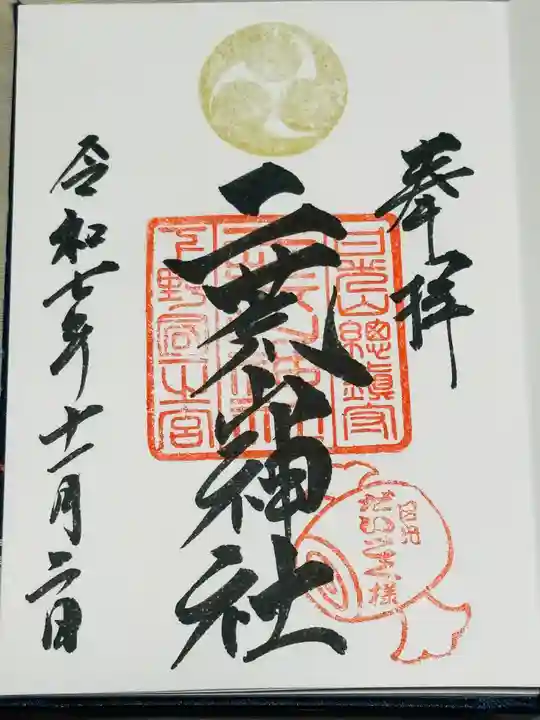 奉拝
日光山總鎮守
二荒山神社
下野国一之宮
日光
だいこく様
令和七年十一月二日